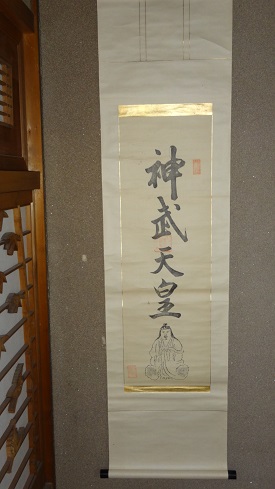 神武天皇